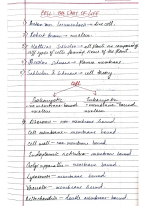 CELL: THE UNIT OF LIFE
1) Anton von Leeuwenhoek → live cell.
2) Robert Brown → nucleus.
3) Matthias Schleiden → all plants are composed
of types of cells forming tissues of the plant.
4) Theodore Schwann → plasma membrane
5) Schleiden & Schwann → cell theory
Cell
Prokaryotic
Eukaryotic
→ no membrane bound
→ membrane bound
Ribosomes → non membrane bound
Cell membrane → membrane bound
Cell wall → non membrane bound
Endoplasmic reticulum → membrane bound
Golgi apparatus → membrane bound
Lysosomes → membrane bound
Vacuole → membrane bound
Mitochondria → double membrane bound